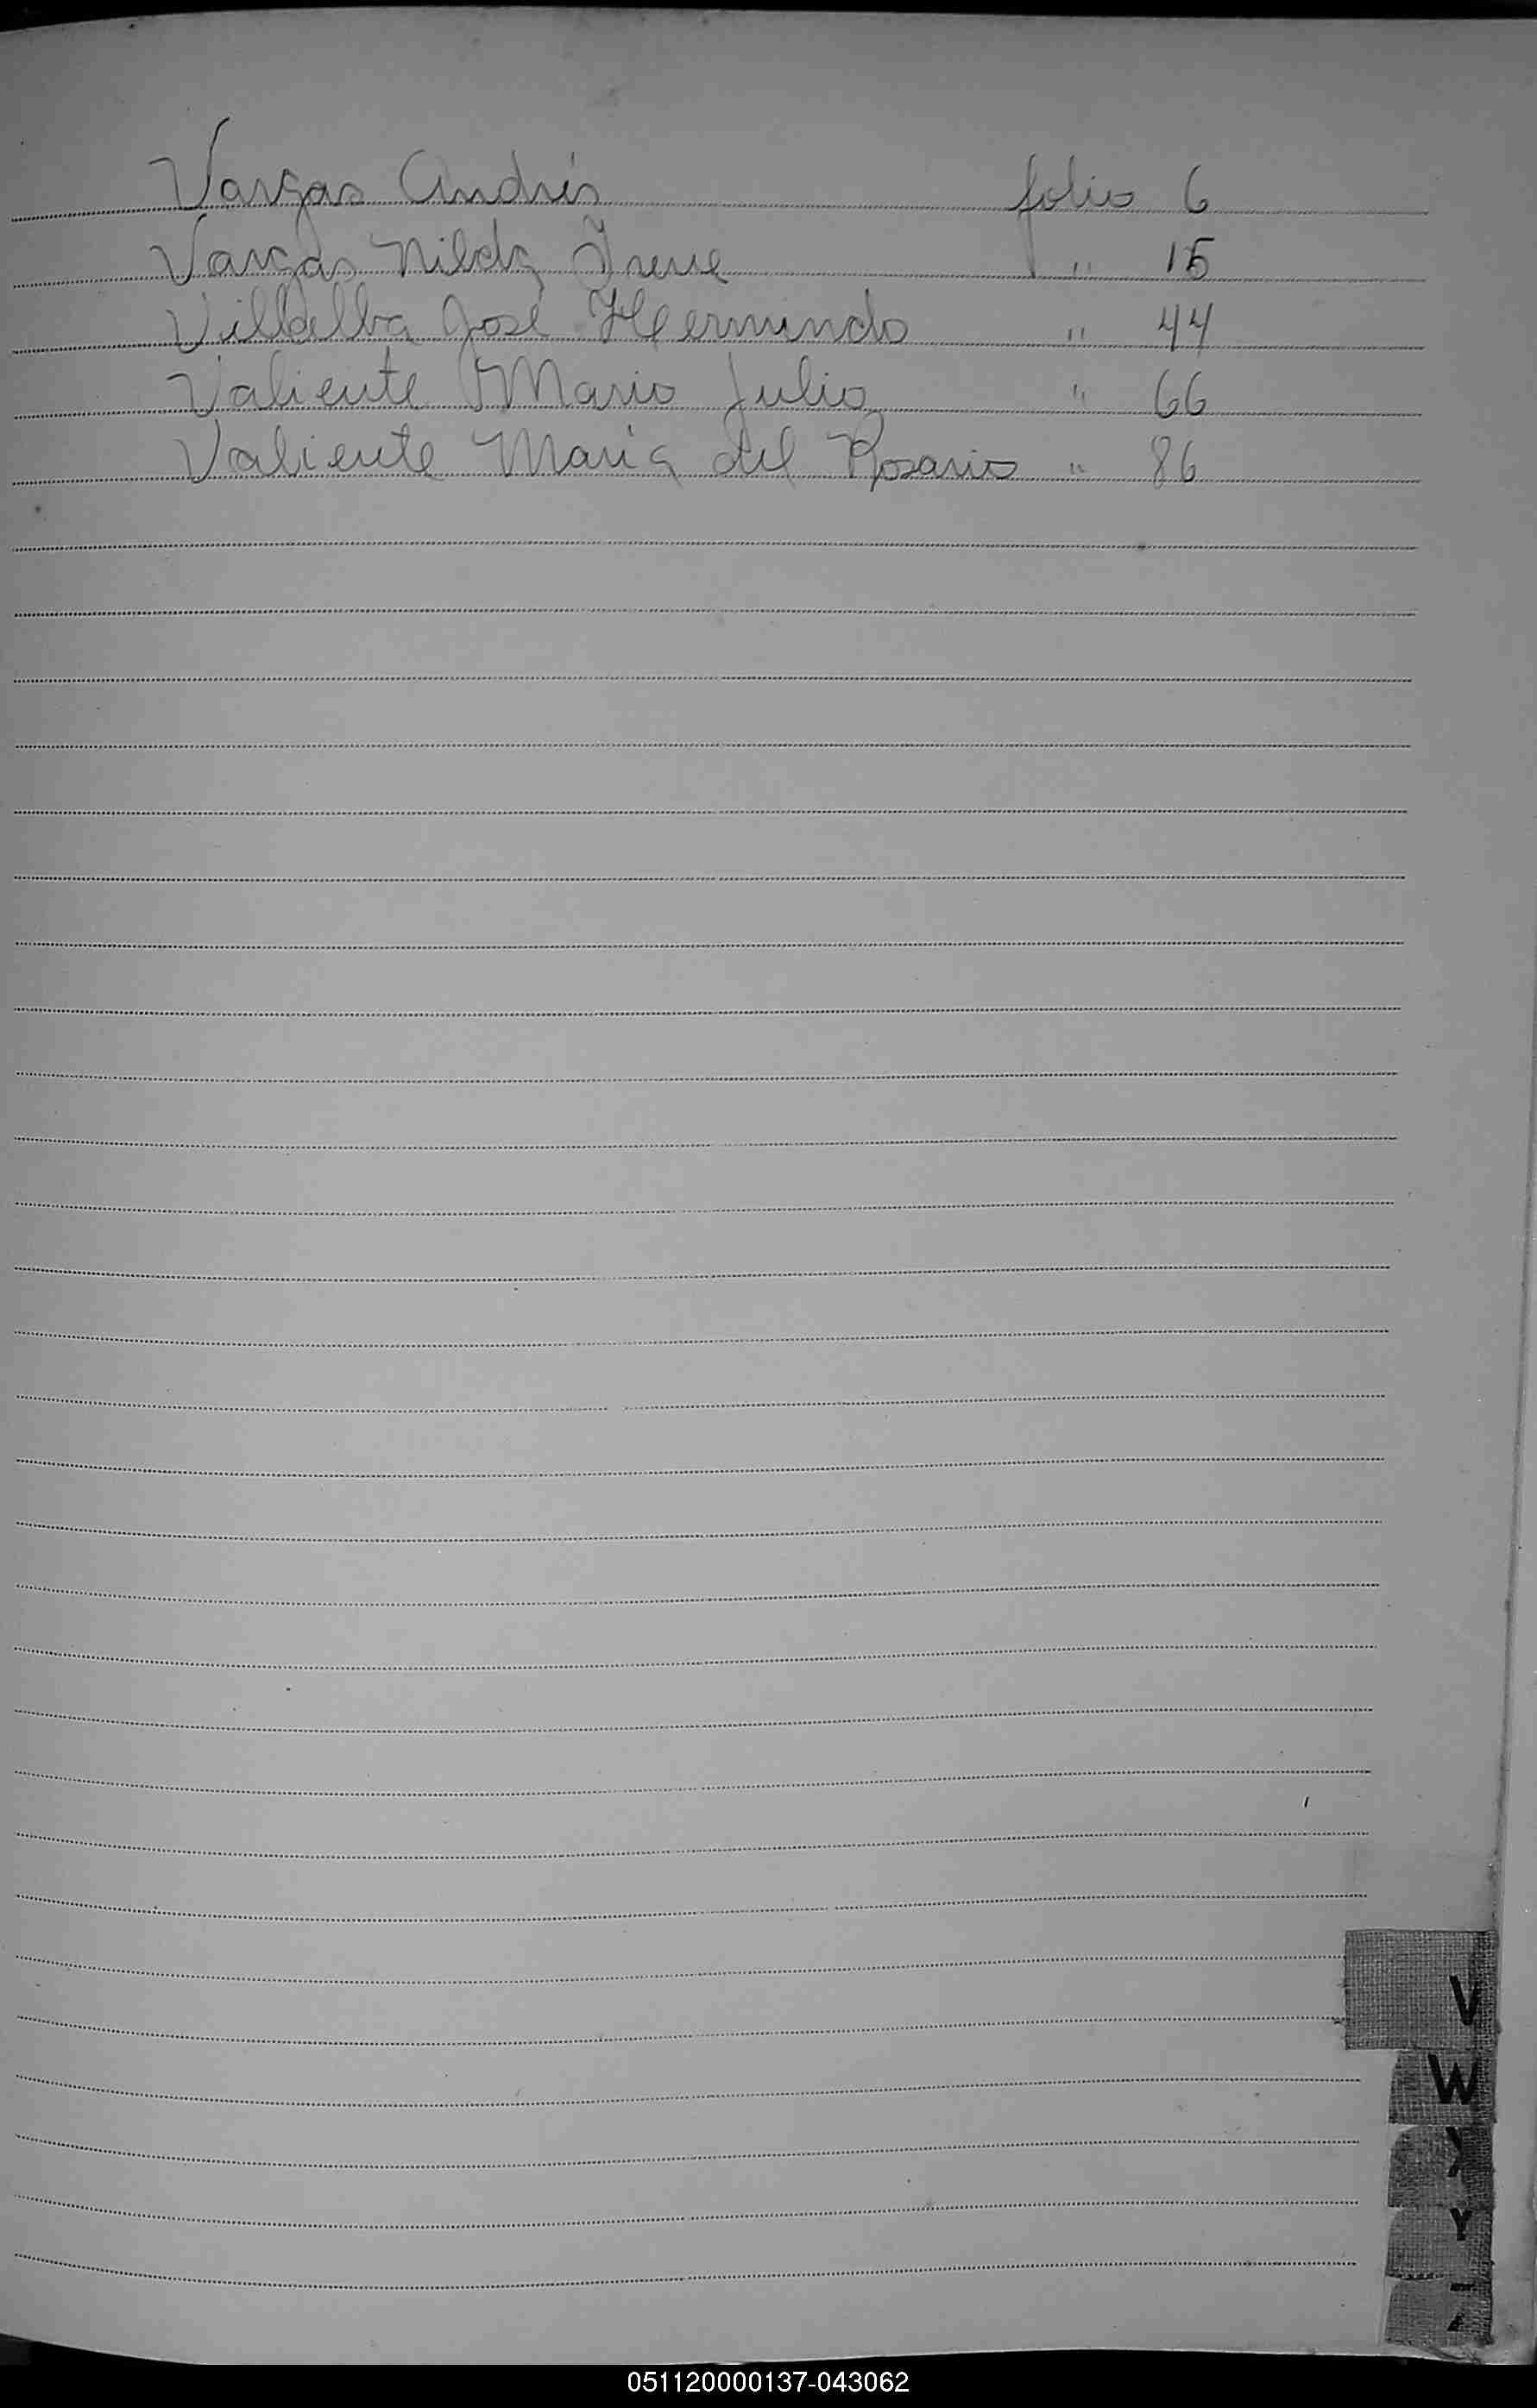 Vargas Andrés folio 6
Vargas Nilda Irene " 15
Villalba José Hermindo " 44
Valiente Mario Julio " 66
Valiente María del Rosario " 86
V
W
X
Y
Z
051120000137-043062